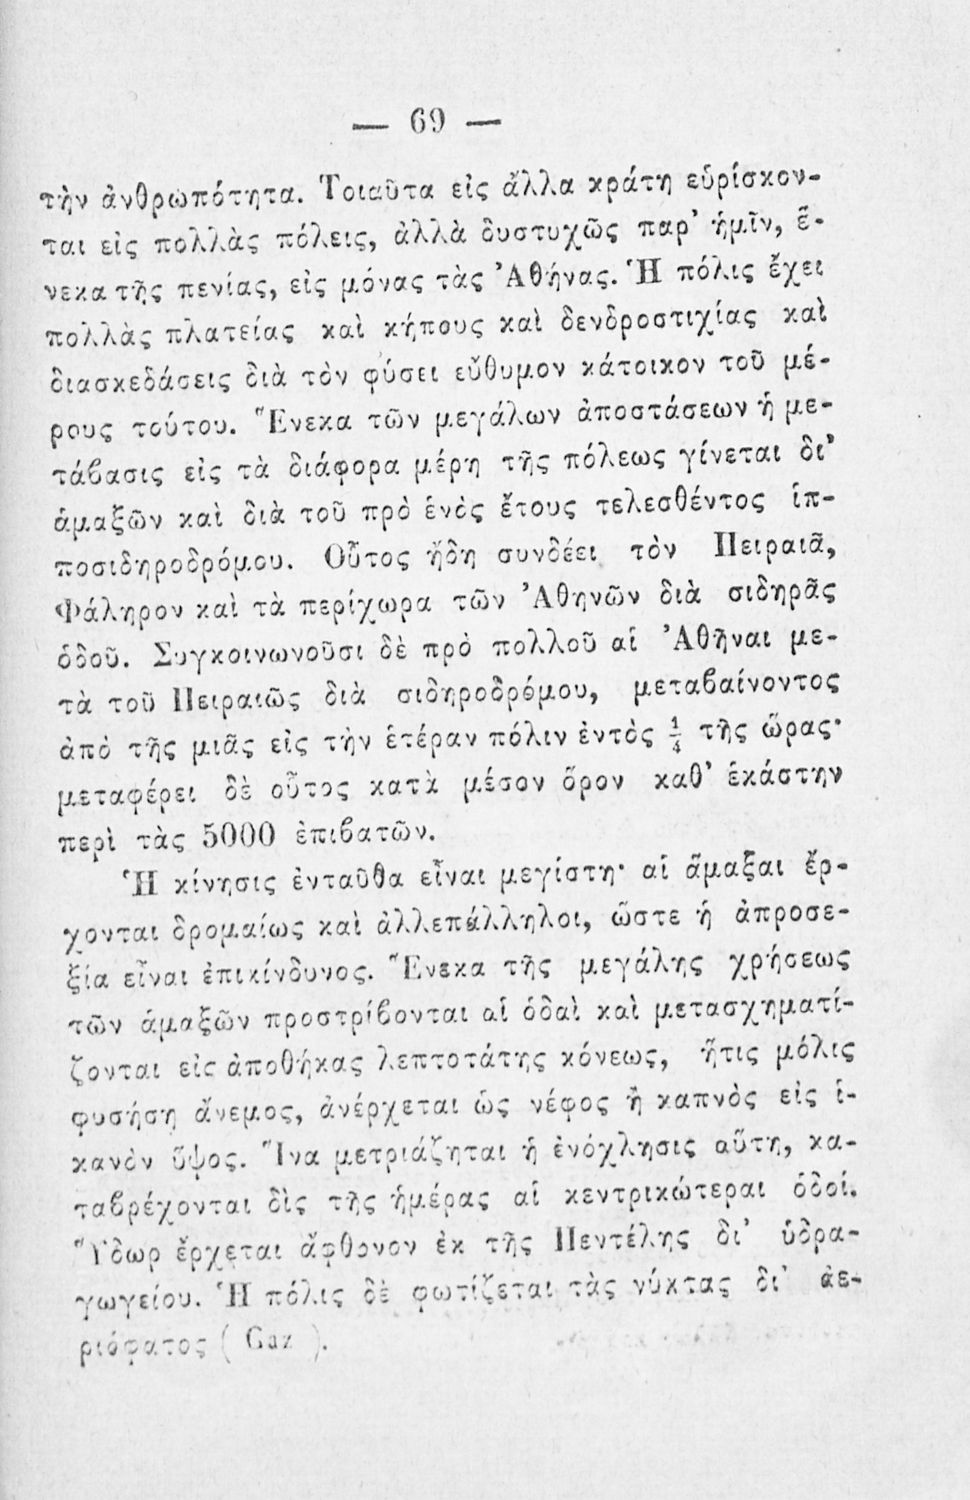 — 69 —
τὴν ἀνθρωπότητα. Τοιαῦτα εἰς ἄλλα κράτη εὑρίσκον-
ται εἰς πολλὰς πόλεις, ἀλλὰ δυστυχῶς παρ' ἡμῖν, ἕ-
νεκα τῆς πενίας, εἰς μόνας τὰς Ἀθήνας. Ἡ πόλις ἔχει
πολλὰς πλατείας καὶ κήπους καὶ δενδροστιχίας καὶ
διασκεδάσεις διὰ τὸν φύσει εὔθυμον κάτοικον τοῦ μέ-
ρους τούτου. Ἕνεκα τῶν μεγάλων ἀποστάσεων ἡ με-
τάβασις εἰς τὰ διάφορα μέρη τῆς πόλεως γίνεται δι'
ἁμαξῶν καὶ διὰ τοῦ πρὸ ἑνὸς ἔτους τελεσθέντος ἱπ-
ποσιδηροδρόμου. Οὗτος ἤδη συνδέει τὸν Πειραιᾶ,
Φάληρον καὶ τὰ περίχωρα τῶν Ἀθηνῶν διὰ σιδηρᾶς
ὁδοῦ. Συγκοινωνοῦσι δὲ πρὸ πολλοῦ αἱ Ἀθῆναι με-
τὰ τοῦ Πειραιῶς διὰ σιδηροδρόμου, μεταβαίνοντος
ἀπὸ τῆς μιᾶς εἰς τὴν ἑτέραν πόλιν ἐντὸς ¼ τῆς ὥρας·
μεταφέρει δὲ οὗτος κατὰ μέσον ὅρον καθ' ἑκάστην
περὶ τὰς 5000 ἐπιβατῶν.
Ἡ κίνησις ἐνταῦθα εἶναι μεγίστη· αἱ ἅμαξαι ἔρ-
χονται δρομαίως καὶ ἀλλεπάλληλοι, ὥστε ἡ ἀπροσε-
ξία εἶναι ἐπικίνδυνος. Ἕνεκα τῆς μεγάλης χρήσεως
τῶν ἁμαξῶν προστρίβονται αἱ ὁδαὶ καὶ μετασχηματί-
ζονται εἰς ἀποθήκας λεπτοτάτης κόνεως, ἥτις μόλις
φυσήση ἄνεμος, ἀνέρχεται ὡς νέφος ἢ καπνὸς εἰς ἱ-
κανὸν ὕψος. Ἵνα μετριάζηται ἡ ἐνόχλησις αὕτη, κα-
ταβρέχονται δὶς τῆς ἡμέρας αἱ κεντρικώτεραι ὁδοί.
Ὕδωρ ἔρχεται ἄφθονον ἐκ τῆς Πεντέλης δι' ὑδρα-
γωγείου. Ἡ πόλις δὲ φωτίζεται τὰς νύκτας δι' ἀε-
ριόφατος ( Gaz ).